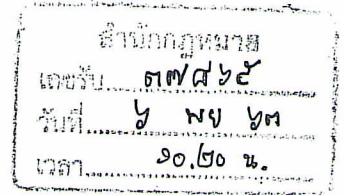 สำนักกฎหมาย
เลขรับ ๓๗๘๖๕
วันที่ ๖ พย ๖๓
เวลา ๑๐.๒๐ น.